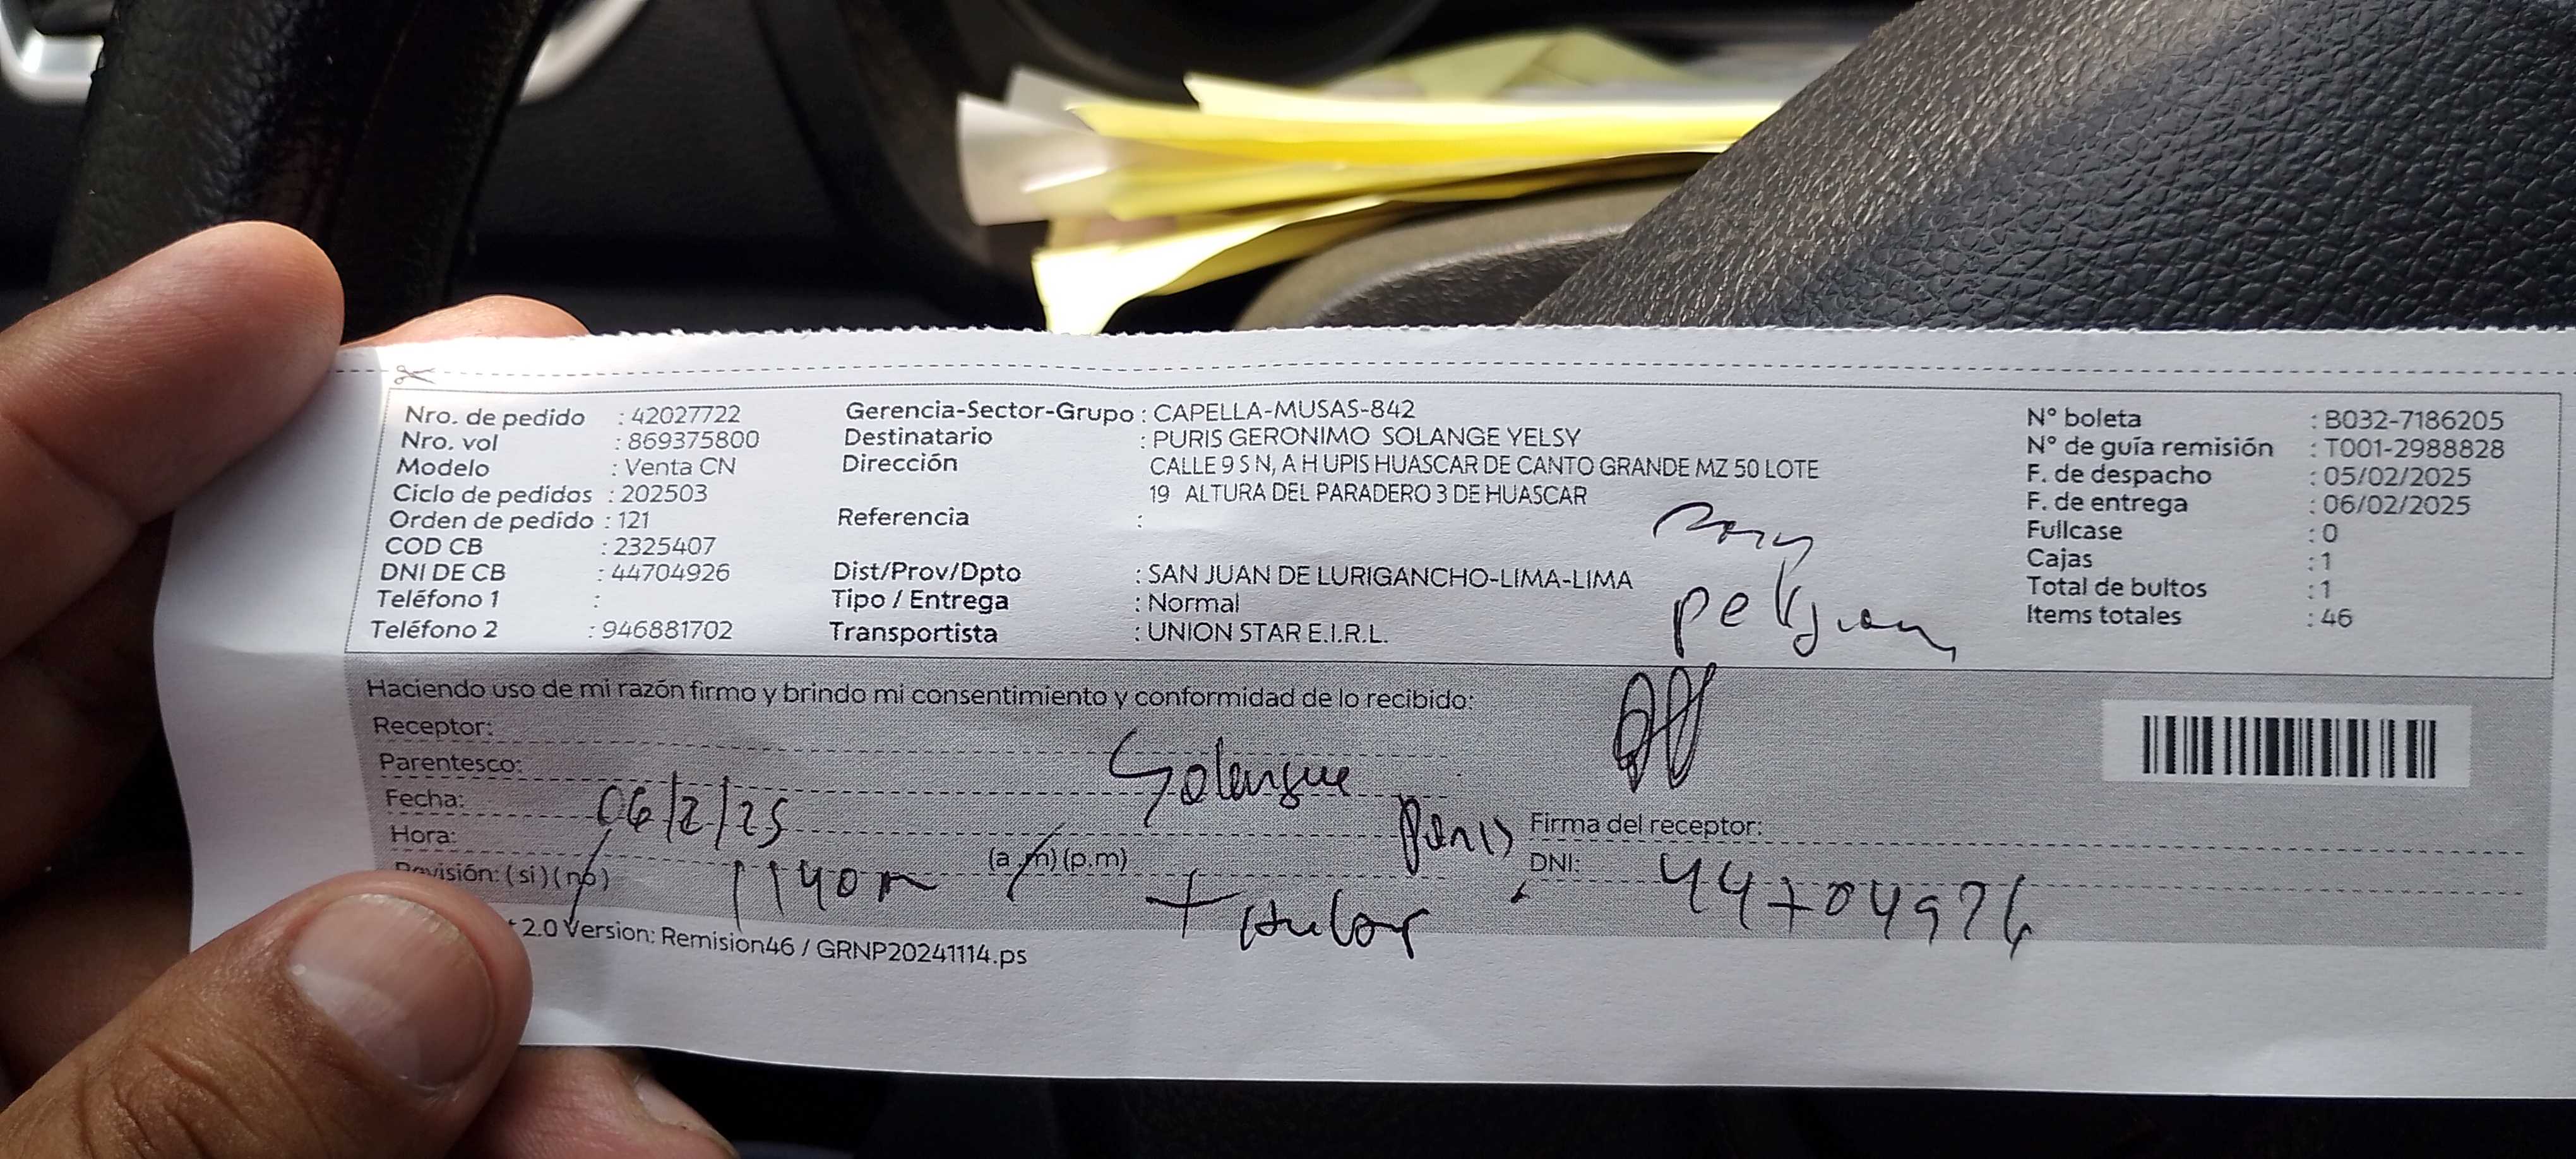 Nro. de pedido : 42027722
Nro. vol : 869375800
Modelo : Venta CN
Ciclo de pedidos : 202503
Orden de pedido : 121
COD CB : 2325407
DNI DE CB : 44704926
Teléfono 1 :
Teléfono 2 : 946881702
Gerencia-Sector-Grupo : CAPELLA-MUSAS-842
Destinatario : PURIS GERONIMO SOLANGE YELSY
Dirección CALLE 9 S N, A H UPIS HUASCAR DE CANTO GRANDE MZ 50 LOTE
19 ALTURA DEL PARADERO 3 DE HUASCAR
Referencia :
Dist/Prov/Dpto : SAN JUAN DE LURIGANCHO-LIMA-LIMA
Tipo / Entrega : Normal
Transportista : UNION STAR E.I.R.L.
N° boleta : B032-7186205
N° de guía remisión : T001-2988828
F. de despacho : 05/02/2025
F. de entrega : 06/02/2025
Fullcase : 0
Cajas : 1
Total de bultos : 1
Items totales : 46
Haciendo uso de mi razón firmo y brindo mi consentimiento y conformidad de lo recibido:
Receptor:
Parentesco: Solangue
Fecha: 06/2/25
Hora: 1140 (a.m)(p.m)
Revisión: (si)(no)
Titular
Firma del receptor:
DNI: 44704926
2.0 Version: Remision46 / GRNP20241114.ps